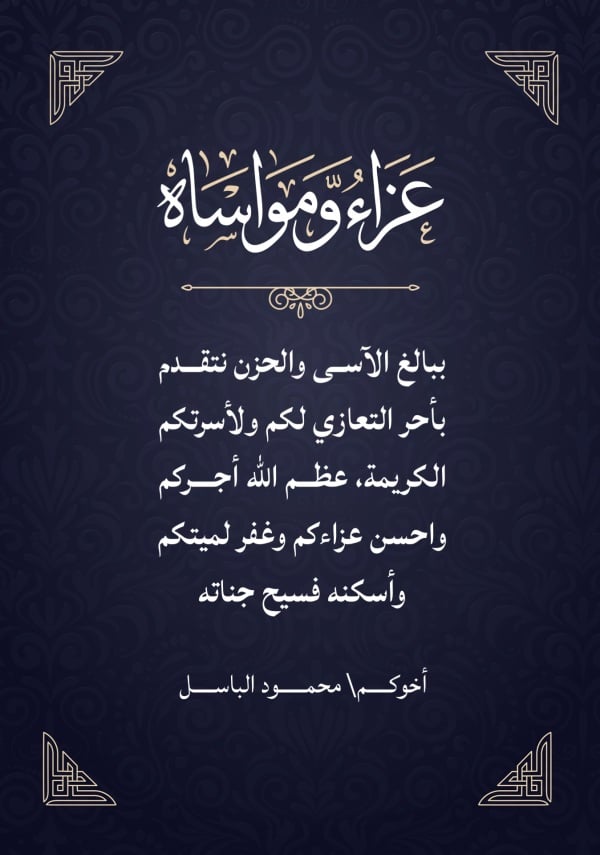 عَزَاءُ وَّمَوَاسَاه
ببالغ الآسـى والحزن نتقـدم
بأحر التعازي لكم ولأسرتكم
الكريمة، عظـم الله أجـركم
واحسن عزاءكم وغفر لميتكم
وأسكنه فسيح جناته
أخوكـم\ محمـود الباسـل